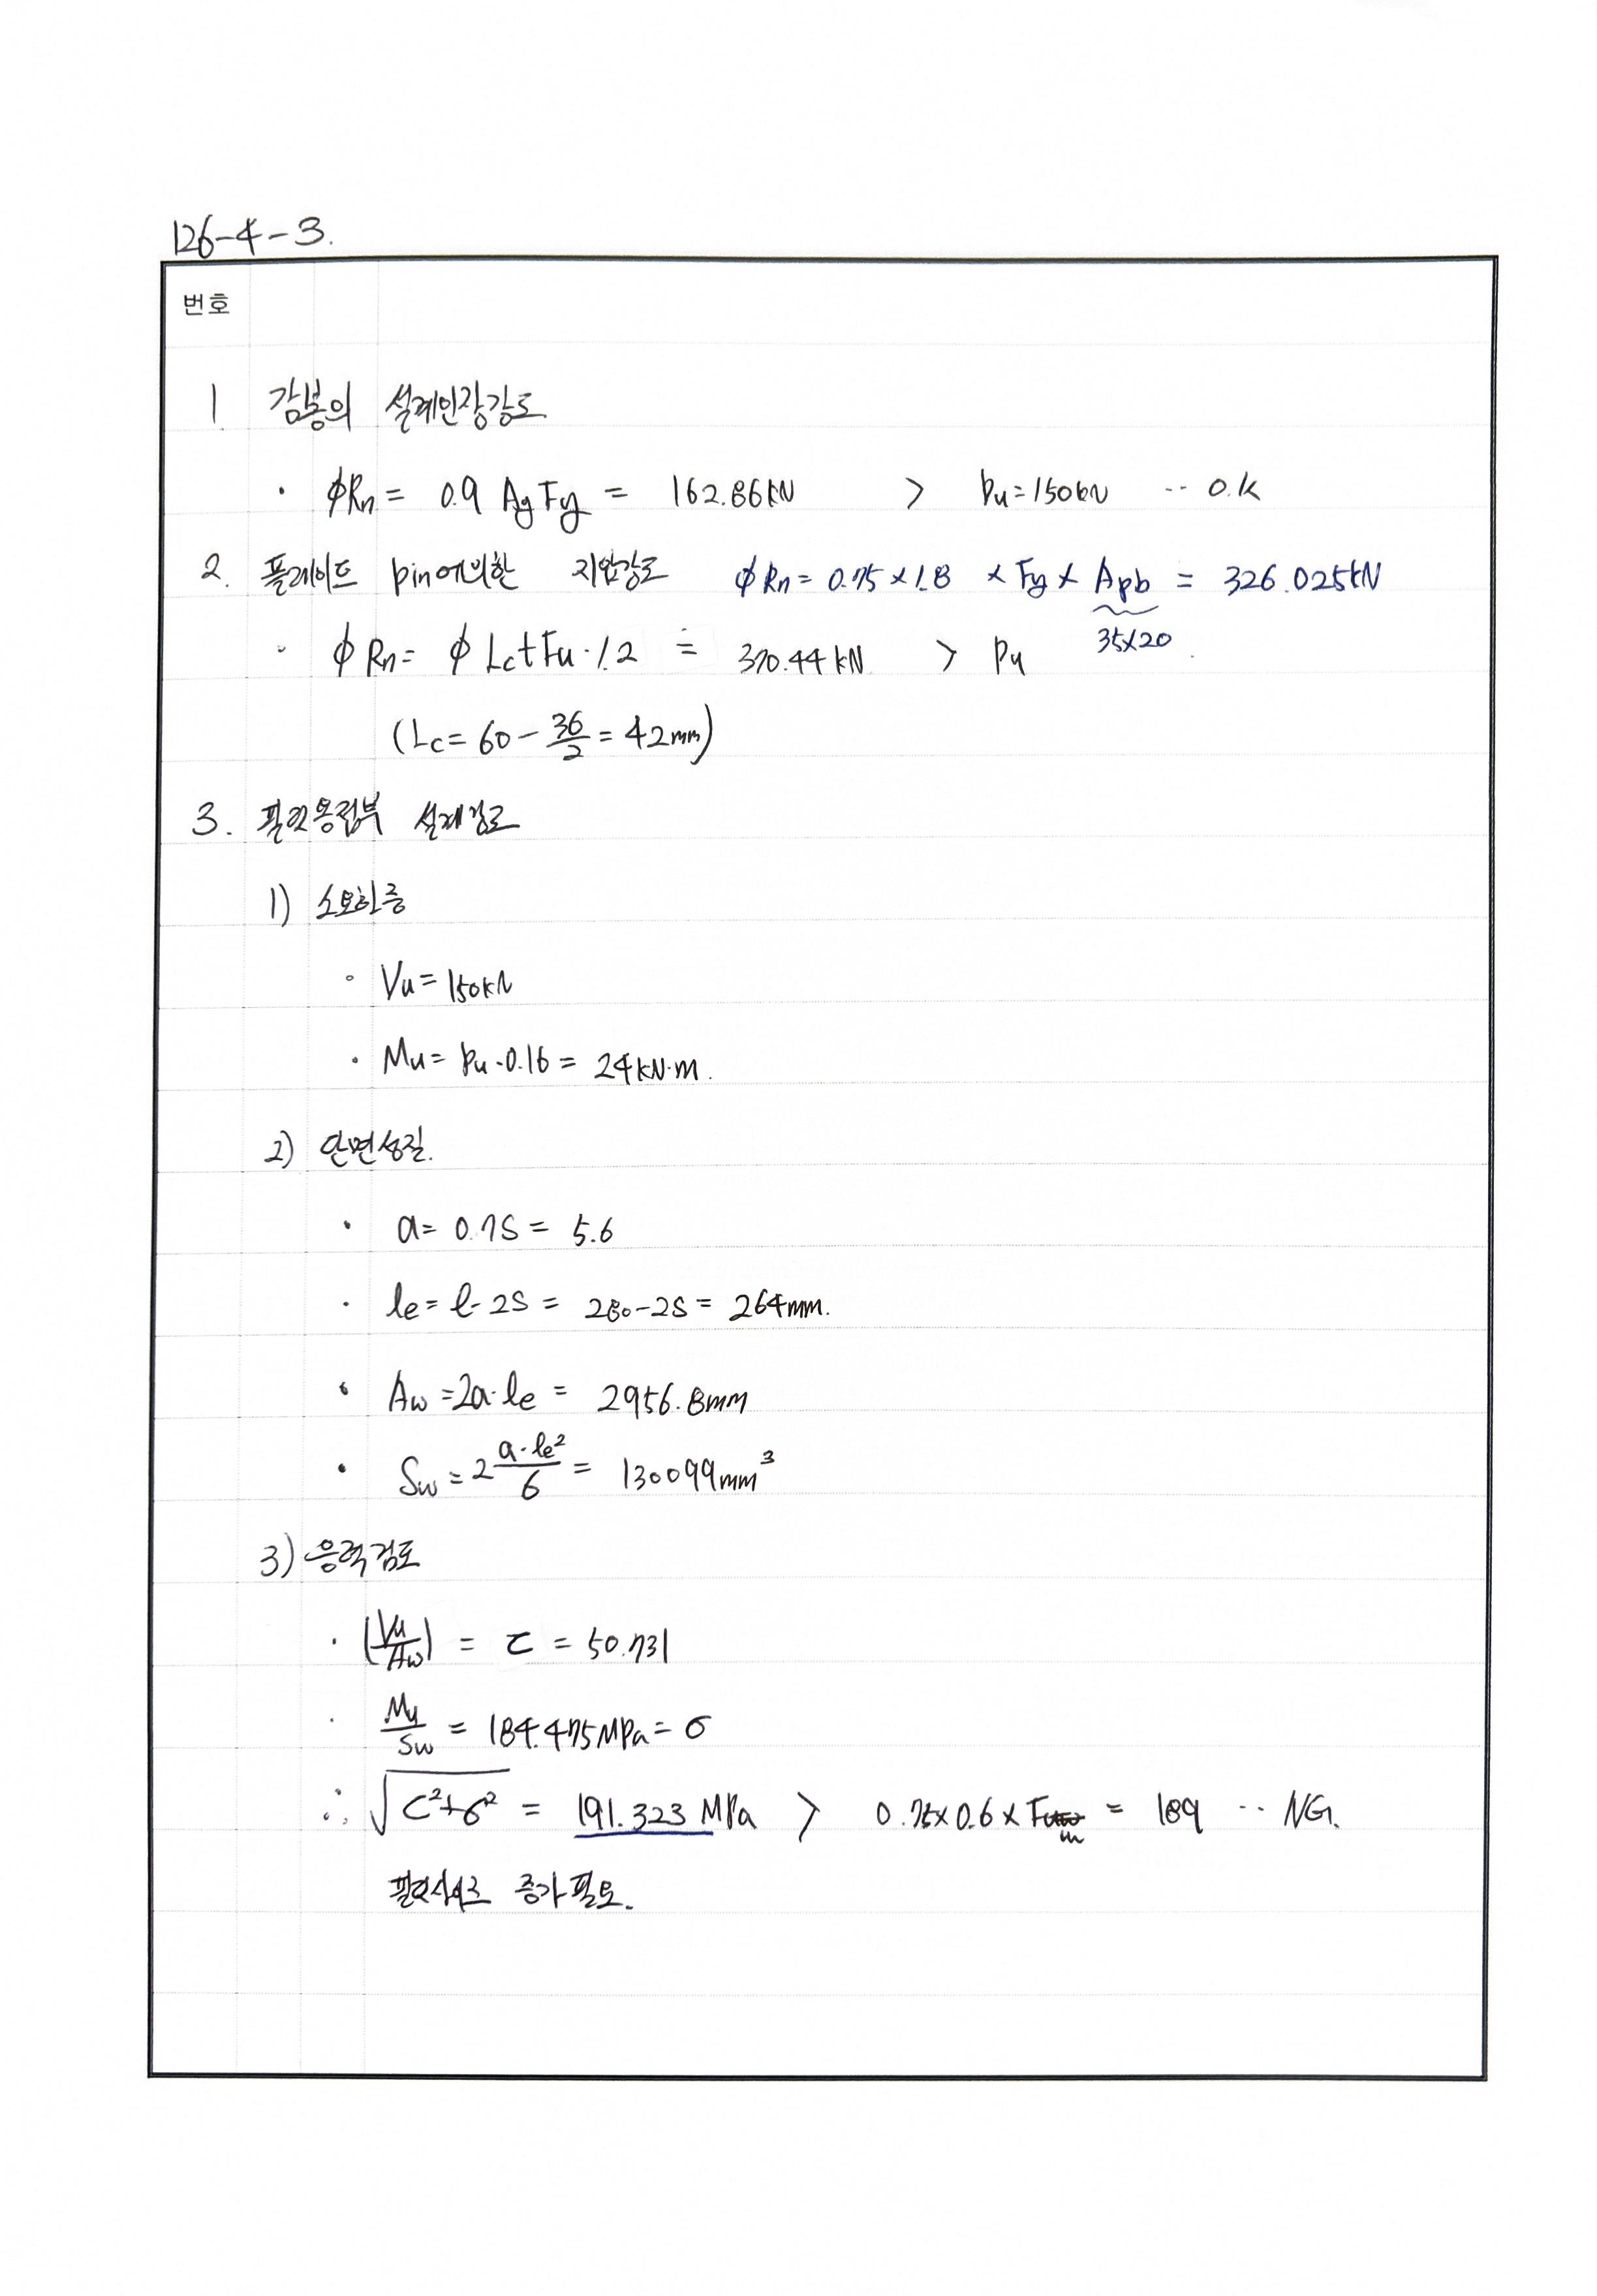 126-4-3.
번호
1 강봉의 설계인장강도.
· ϕRn = 0.9 AgFy = 162.86kN > Pu=150kN ‥ O.K
2. 플레이트 pin에의한 지압강도 ϕRn = 0.75×1.8 × Fy × Apb = 326.025kN
35×20
· ϕRn = ϕ Lc t Fu · 1.2 ≒ 370.44 kN > Pu
(Lc = 60 - 36/2 = 42mm)
3. 필릿용접부 설계강도
1) 소요하중
· Vu = 150kN
· Mu = Pu · 0.16 = 24kN·m.
2) 단면성질.
· a = 0.7S = 5.6
· le = l - 2S = 280-2S = 264mm.
· Aw = 2a·le = 2956.8mm
· Sw = 2 a·le²/6 = 130099mm³
3) 응력검토
· (Vu/Aw) = τ = 50.731
· Mu/Sw = 184.475MPa = σ
∴ √τ²+σ² = 191.323 MPa > 0.75×0.6×Fuw = 189 ‥ NG.
필릿사이즈 증가필요.